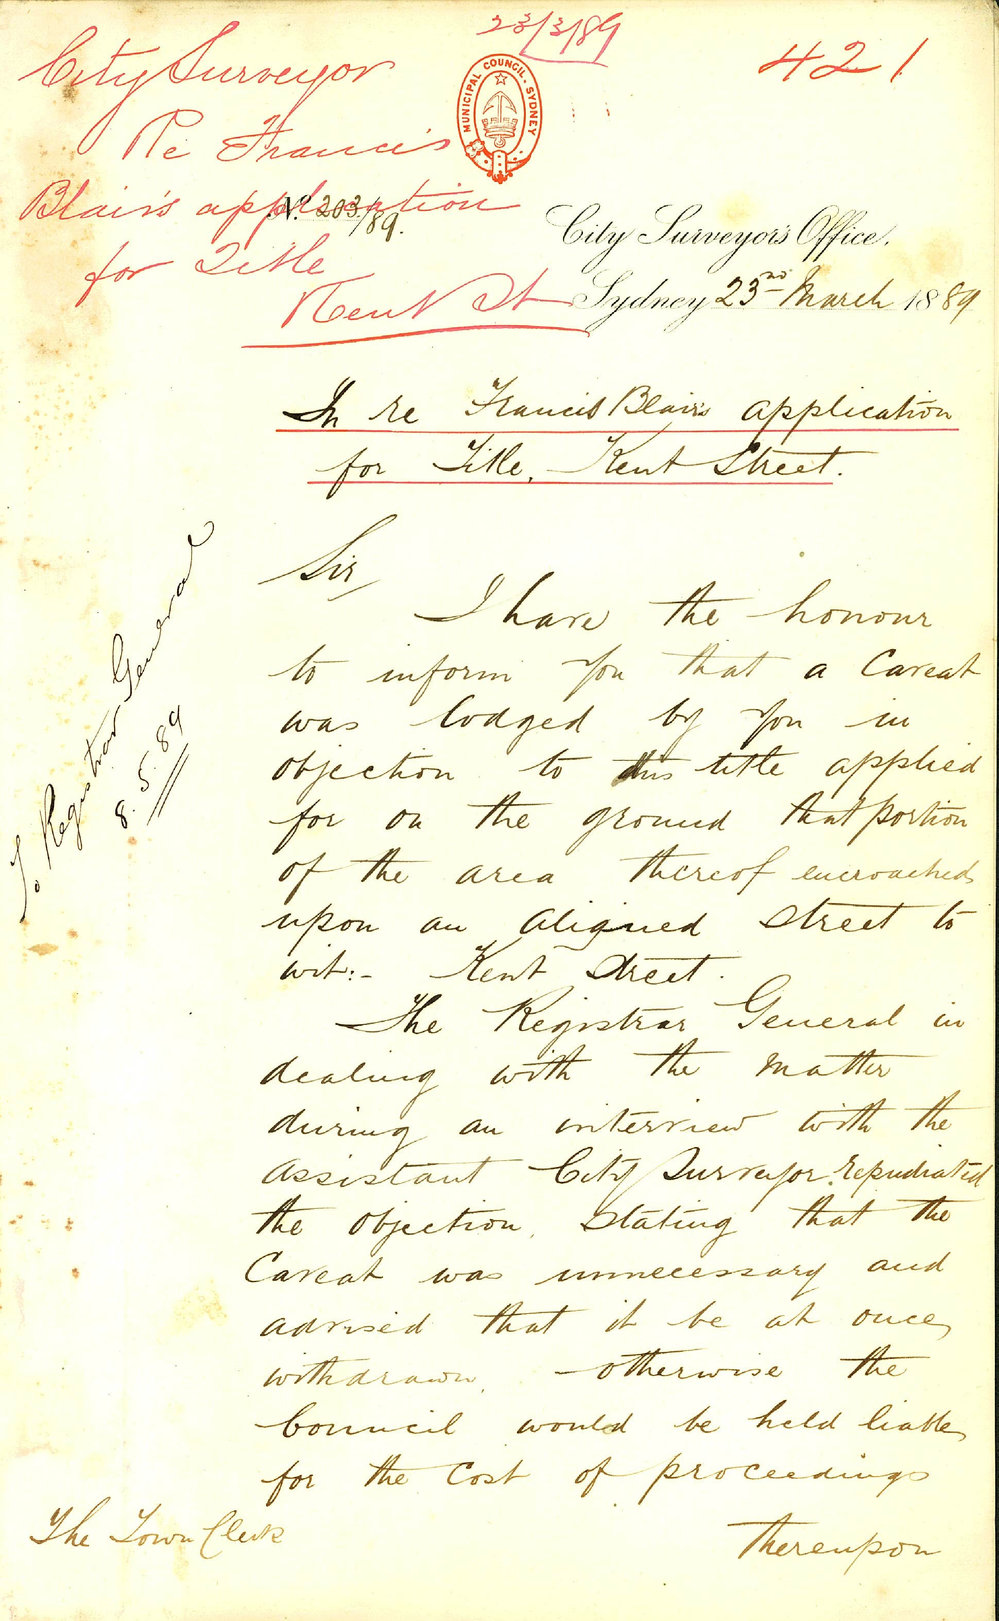 23/3/89
421
City Surveyor
Re Francis
Blair's application
for Title
Kent St
MUNICIPAL COUNCIL · SYDNEY
No. 203/89.
City Surveyor's Office.
Sydney 23rd March 1889
In re Francis Blair's application
for Title, Kent Street.
Sir,
I have the honour
to inform you that a Caveat
was lodged by you in
objection to this title applied
for on the ground that portion
of the area thereof encroached
upon an aligned street to
wit:- Kent Street.
The Registrar General in
dealing with the matter
during an interview with the
Assistant City Surveyor repudiated
the objection, stating that the
Caveat was unnecessary and
advised that it be at once
withdrawn, - otherwise the
Council would be held liable
for the cost of proceedings
thereupon
The Town Clerk
To Registrar General
8.5.89